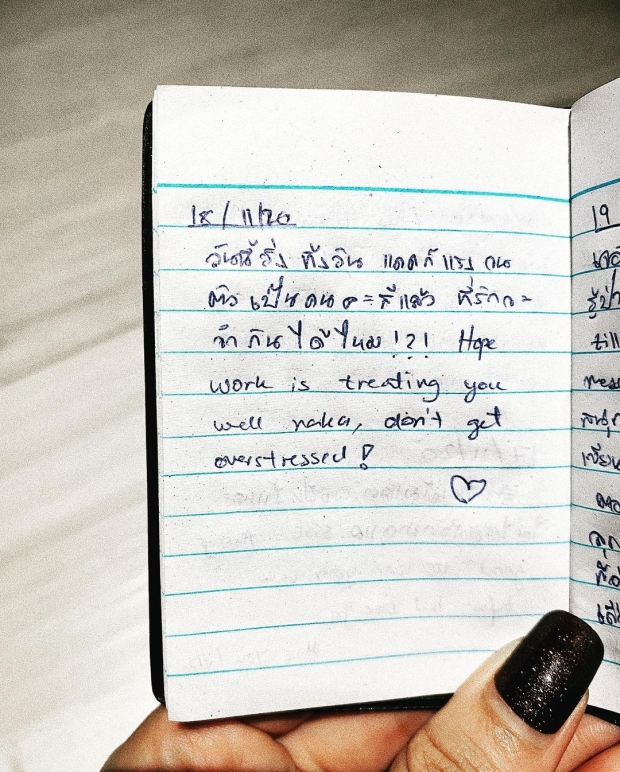 18/11/20
วันนี้วิ่ง ทั้งวัน แดดก็แรง จน
ตัวเป็นคน ละสีแล้ว ที่รักจะ
จำกันได้ไหม!?! Hope
work is treating you
well naka, don't get
overstressed!
19
till